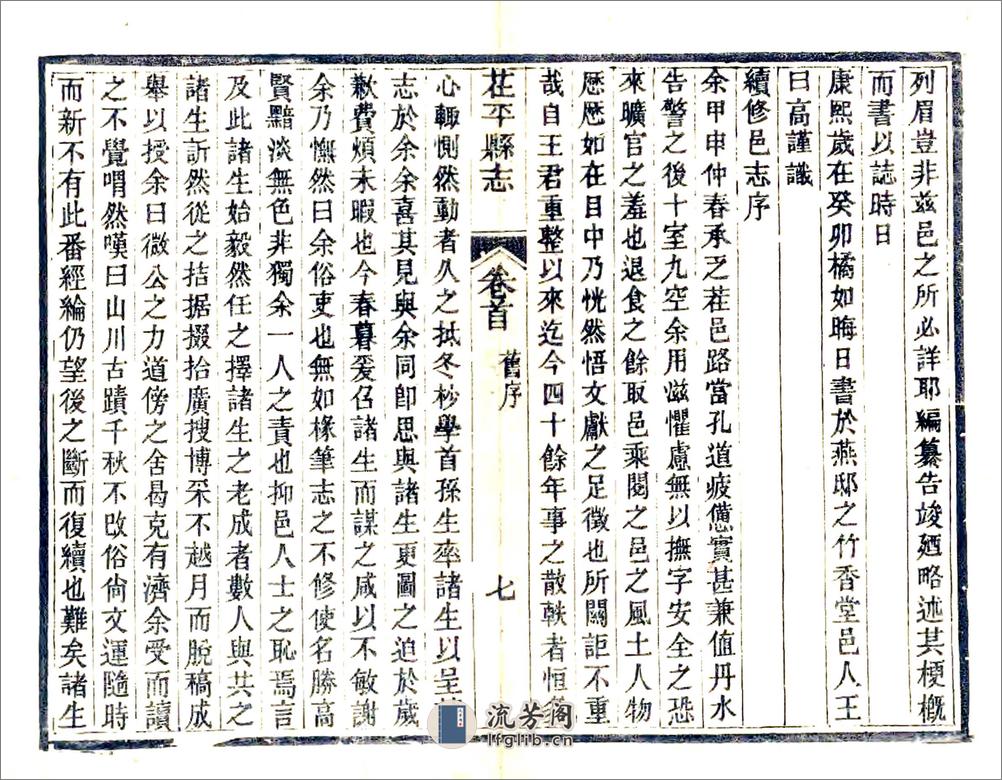 列眉豈非兹邑之所必詳耶編纂告竣廼略述其梗概
而書以誌時日
康熙歲在癸卯橘如晦日書於燕邸之竹香堂邑人王
曰高謹識
續修邑志序
余甲申仲春承乏茌邑路當孔道疲憊實甚兼值丹水
告警之後十室九空余用滋懼慮無以撫字安全之恐
來曠官之羞也退食之餘取邑乘閱之邑之風土人物
歷歷如在目中乃恍然悟文獻之足徵也所關詎不重
哉自王君重整以來迄今四十餘年事之散軼者恒
茌平縣志
卷首
舊序
七
心輒惻然動者久之抵冬杪學首孫生率諸生以呈
志於余余喜其見與余同卽思與諸生更圖之迫於歲
歉費煩未暇也今春暮爰召諸生而謀之咸以不敏謝
余乃憮然曰余俗吏也無如椽筆志之不修使名勝高
賢黯淡無色非獨余一人之責也抑邑人士之恥焉言
及此諸生始毅然任之擇諸生之老成者數人與共之
諸生訢然從之拮据掇拾廣搜博采不越月而脫稿成
舉以授余曰微公之力道傍之舍曷克有濟余受而讀
之不覺喟然嘆曰山川古蹟千秋不改俗尙文運隨時
而新不有此番經綸仍望後之斷而復續也難矣諸生
流芳阁
lfglib.cn